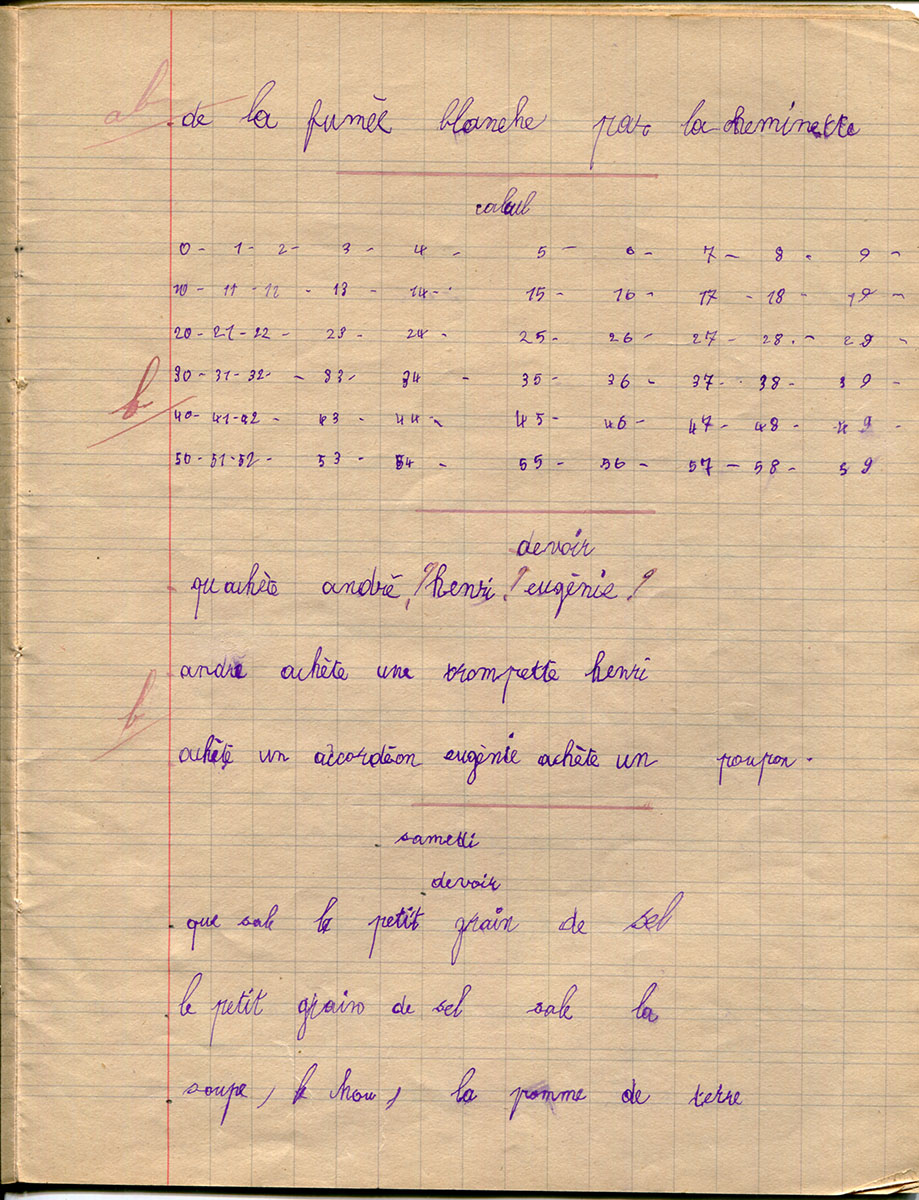 ab
de la fumée blanche par la cheminette
calcul
0 - 1 - 2 - 3 - 4 - 5 - 6 - 7 - 8 - 9 -
10 - 11 - 12 - 13 - 14 - 15 - 16 - 17 - 18 - 19 -
20 - 21 - 22 - 23 - 24 - 25 - 26 - 27 - 28 - 29 -
30 - 31 - 32 - 33 - 34 - 35 - 36 - 37 - 38 - 39 -
b
40 - 41 - 42 - 43 - 44 - 45 - 46 - 47 - 48 - 49
50 - 51 - 52 - 53 - 54 - 55 - 56 - 57 - 58 - 59
devoir
qu achète andré, ? henri, ? eugénie ?
andré achète une trompette henri
b
achète un accordéon eugénie achète un poupon.
samedi
devoir
que sale le petit grain de sel
le petit grain de sel sale la
soupe, le chou, la pomme de terre